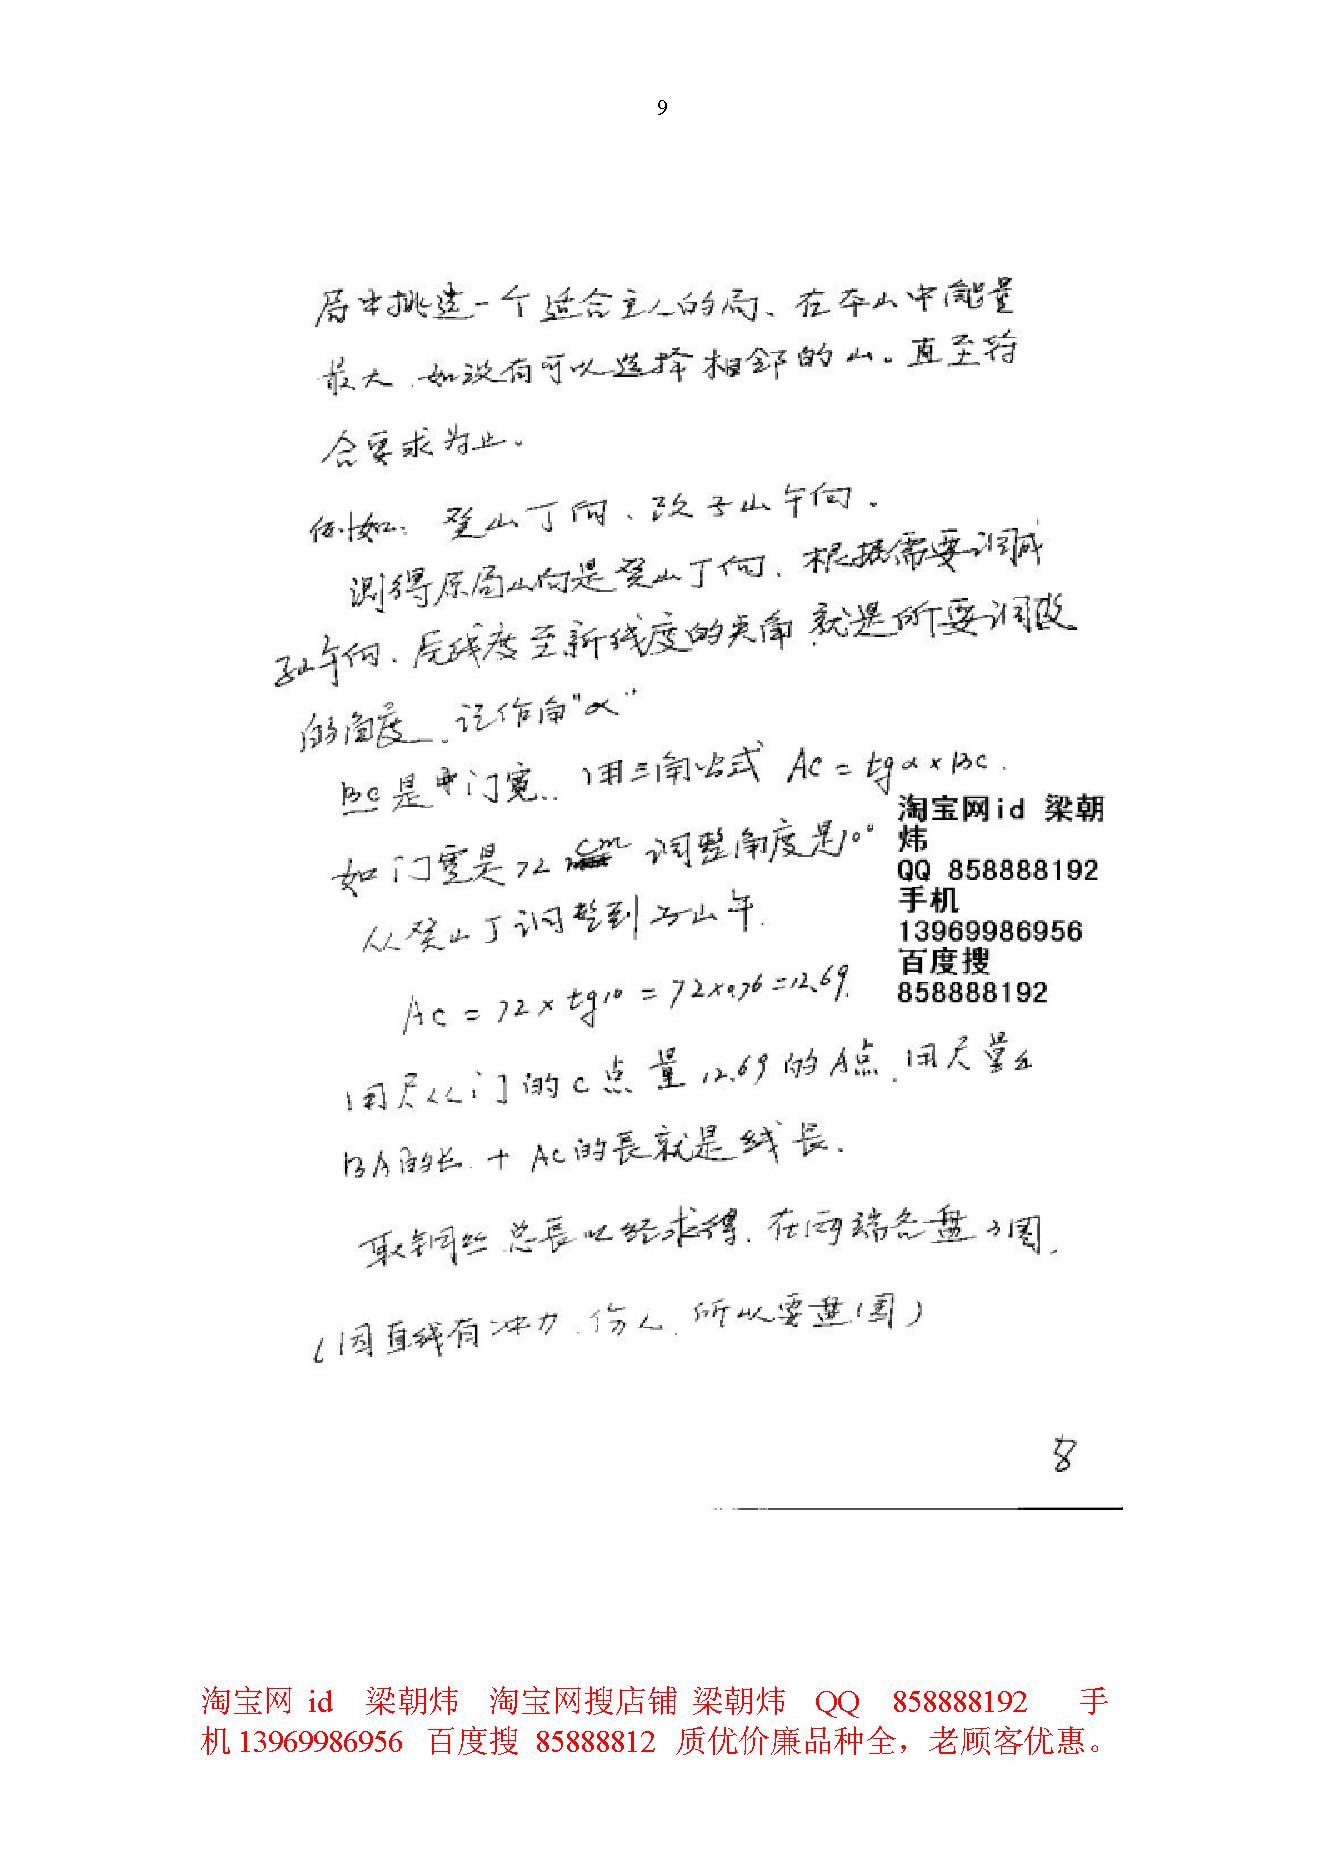 9
局中挑选一个适合主人的局、在本山中能量
最大.如没有可以选择相邻的山。直至符
合要求为止。
例如：癸山丁向、改子山午向.
测得原局山向是癸山丁向、根据需要调成
子山午向、原线度至新线度的夹角.就是所要调改
的角度.记作角"α"
BC是中门宽..用三角公式 AC = tgα × BC.
如门宽是72 cm 调整角度是10°
从癸山丁调整到子山午.
AC = 72 × tg10 = 72×0.176 =12.69.
用尺从门的C点量12.69的A点.用尺量出
BA的长 + AC的長就是线長.
取铜丝总長以经求得.在两端各盘3圈.
(因直线有冲力.伤人.所以要盘(圈)
淘宝网id 梁朝
炜
QQ 858888192
手机
13969986956
百度搜
858888192
8
淘宝网 id 梁朝炜 淘宝网搜店铺 梁朝炜 QQ 858888192 手
机 13969986956 百度搜 85888812 质优价廉品种全，老顾客优惠。